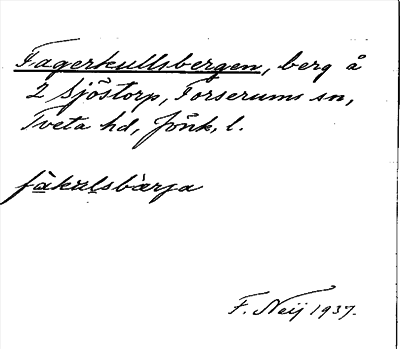 Fagerkullsbergen, berg å
2 Sjöstorp, Forserums sn,
Tveta hd, Jönk. l.
fàkulsbàrja
F. Neij 1937.